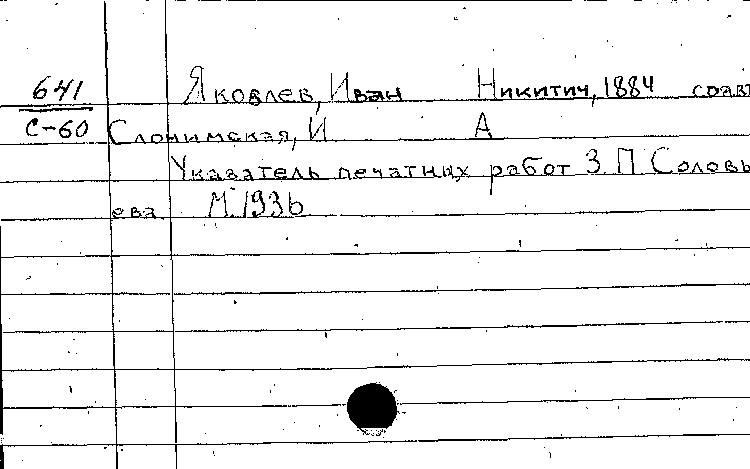 641 Яковлев, Иван Никитич, 1884 соавт
С-60 Слонимская, И. А
Указатель печатных работ З. П. Соловь
ева М. 1936